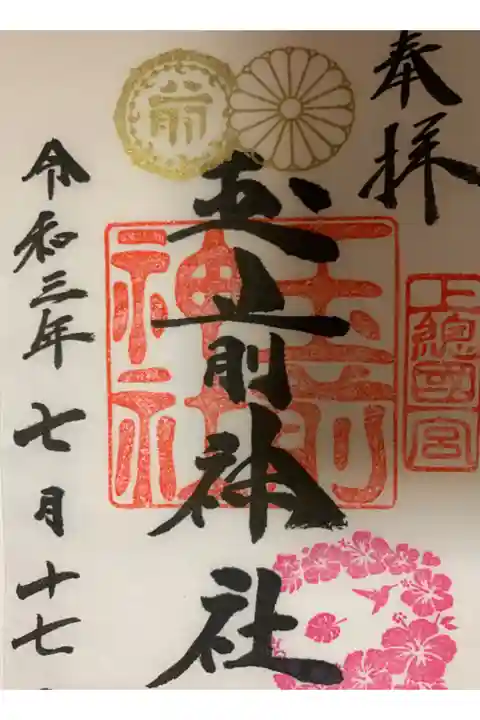 奉拝
上總國宮
前
玉前神社
玉前神社
令和三年七月十七